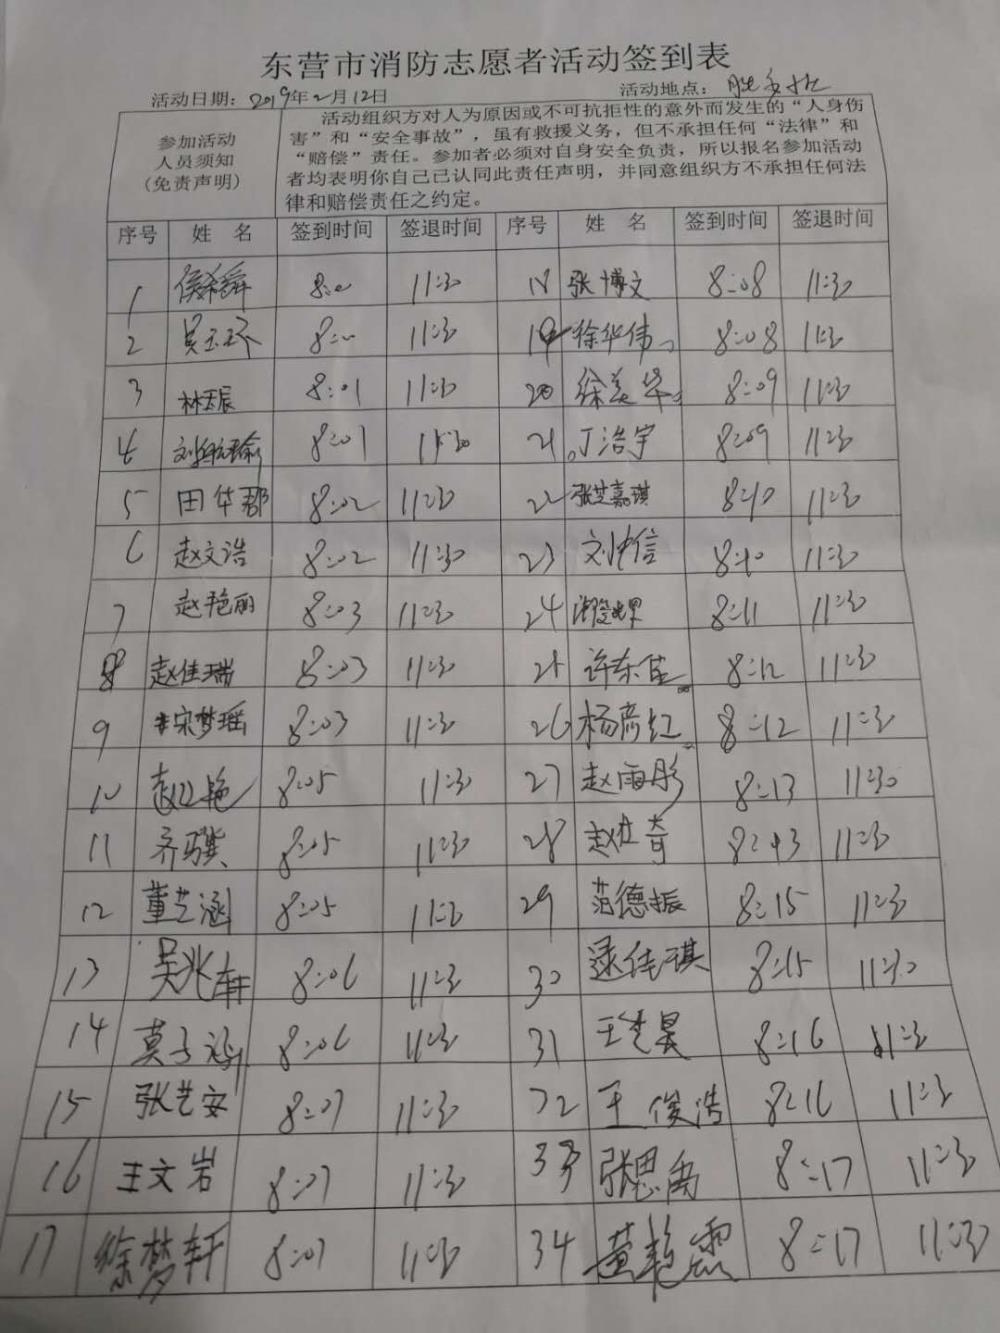 东营市消防志愿者活动签到表
活动日期：2019年2月12日 活动地点：
参加活动
人员须知
(免责声明)
活动组织方对人为原因或不可抗拒性的意外而发生的“人身伤
害”和“安全事故”，虽有救援义务，但不承担任何“法律”和
“赔偿”责任。参加者必须对自身安全负责，所以报名参加活动
者均表明你自己已认同此责任声明，并同意组织方不承担任何法
律和赔偿责任之约定。
序号 姓 名 签到时间 签退时间 序号 姓 名 签到时间 签退时间
1 侯希舜 11:30 18 张博文 8:08 11:30
2 11:30 19 徐华伟 8:08 11:30
3 林珏辰 8:01 11:30 20 徐美华 8:09 11:30
4 8:01 11:30 21 丁浩宇 8:09 11:30
5 田华郡 8:02 11:30 22 张芝嘉琪 8:10 11:30
6 赵文浩 8:02 11:30 23 刘中信 8:10 11:30
7 赵艳丽 8:03 11:30 24 8:11 11:30
8 赵佳瑞 8:03 11:30 25 许东佳 8:12 11:30
9 宋梦瑶 8:03 11:30 26 杨彦红 8:12 11:30
10 8:05 11:30 27 赵雨彤 8:13 11:30
11 齐骥 8:05 11:30 28 8:13 11:30
12 董芝涵 8:05 11:30 29 范德振 8:15 11:30
13 吴兆轩 8:06 11:30 30 逯佳琪 8:15 11:30
14 莫子涵 8:06 11:30 31 8:16 11:30
15 张艺安 8:07 11:30 32 王俊浩 8:16 11:30
16 王文岩 8:07 11:30 33 张思禹 8:17 11:30
17 徐梦轩 8:07 11:30 34 黄艳霞 8:17 11:30